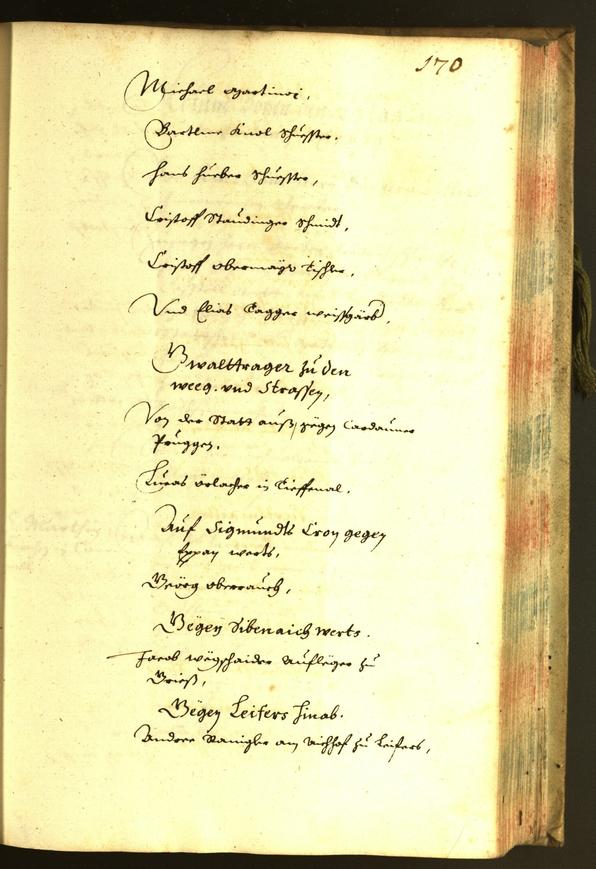 170
Michael Martinoi,
Bartlme Knol Schuesster.
Hans Hueber Schuesster,
Cristoff Staudinger Schmidt,
Cristoff Obermayr Tischler,
Vnd Elias Tagger weissgärb,
Gwalttrager zu den
weeg. vnd Strassen,
Von der Statt auß, gegen Cardauner
Pruggen.
Lucas örlacher in Tieffenal,
Auf Sigmundts Cron gegen
Eppan werts,
Geörg oberrauch,
Gegen Sibenaich werts.
Jacob wegschaider Aufleger zu
Grieß,
Gegen Leifers hinab.
Andree Ranigler am Aichhof zu Leifers,